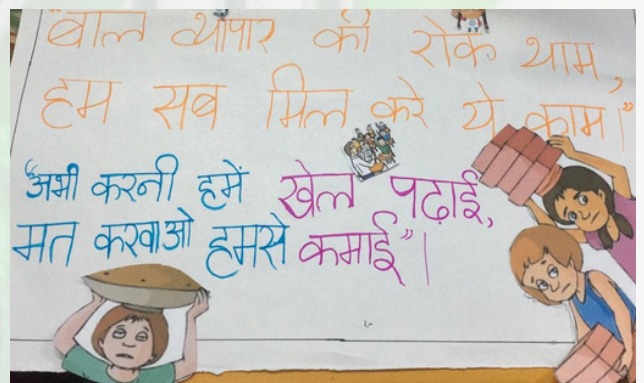 "बाल व्यापार की रोक थाम,
हम सब मिल करे ये काम।"
"अभी करनी हमें खेल पढ़ाई,
मत करवाओ हमसे कमाई"।